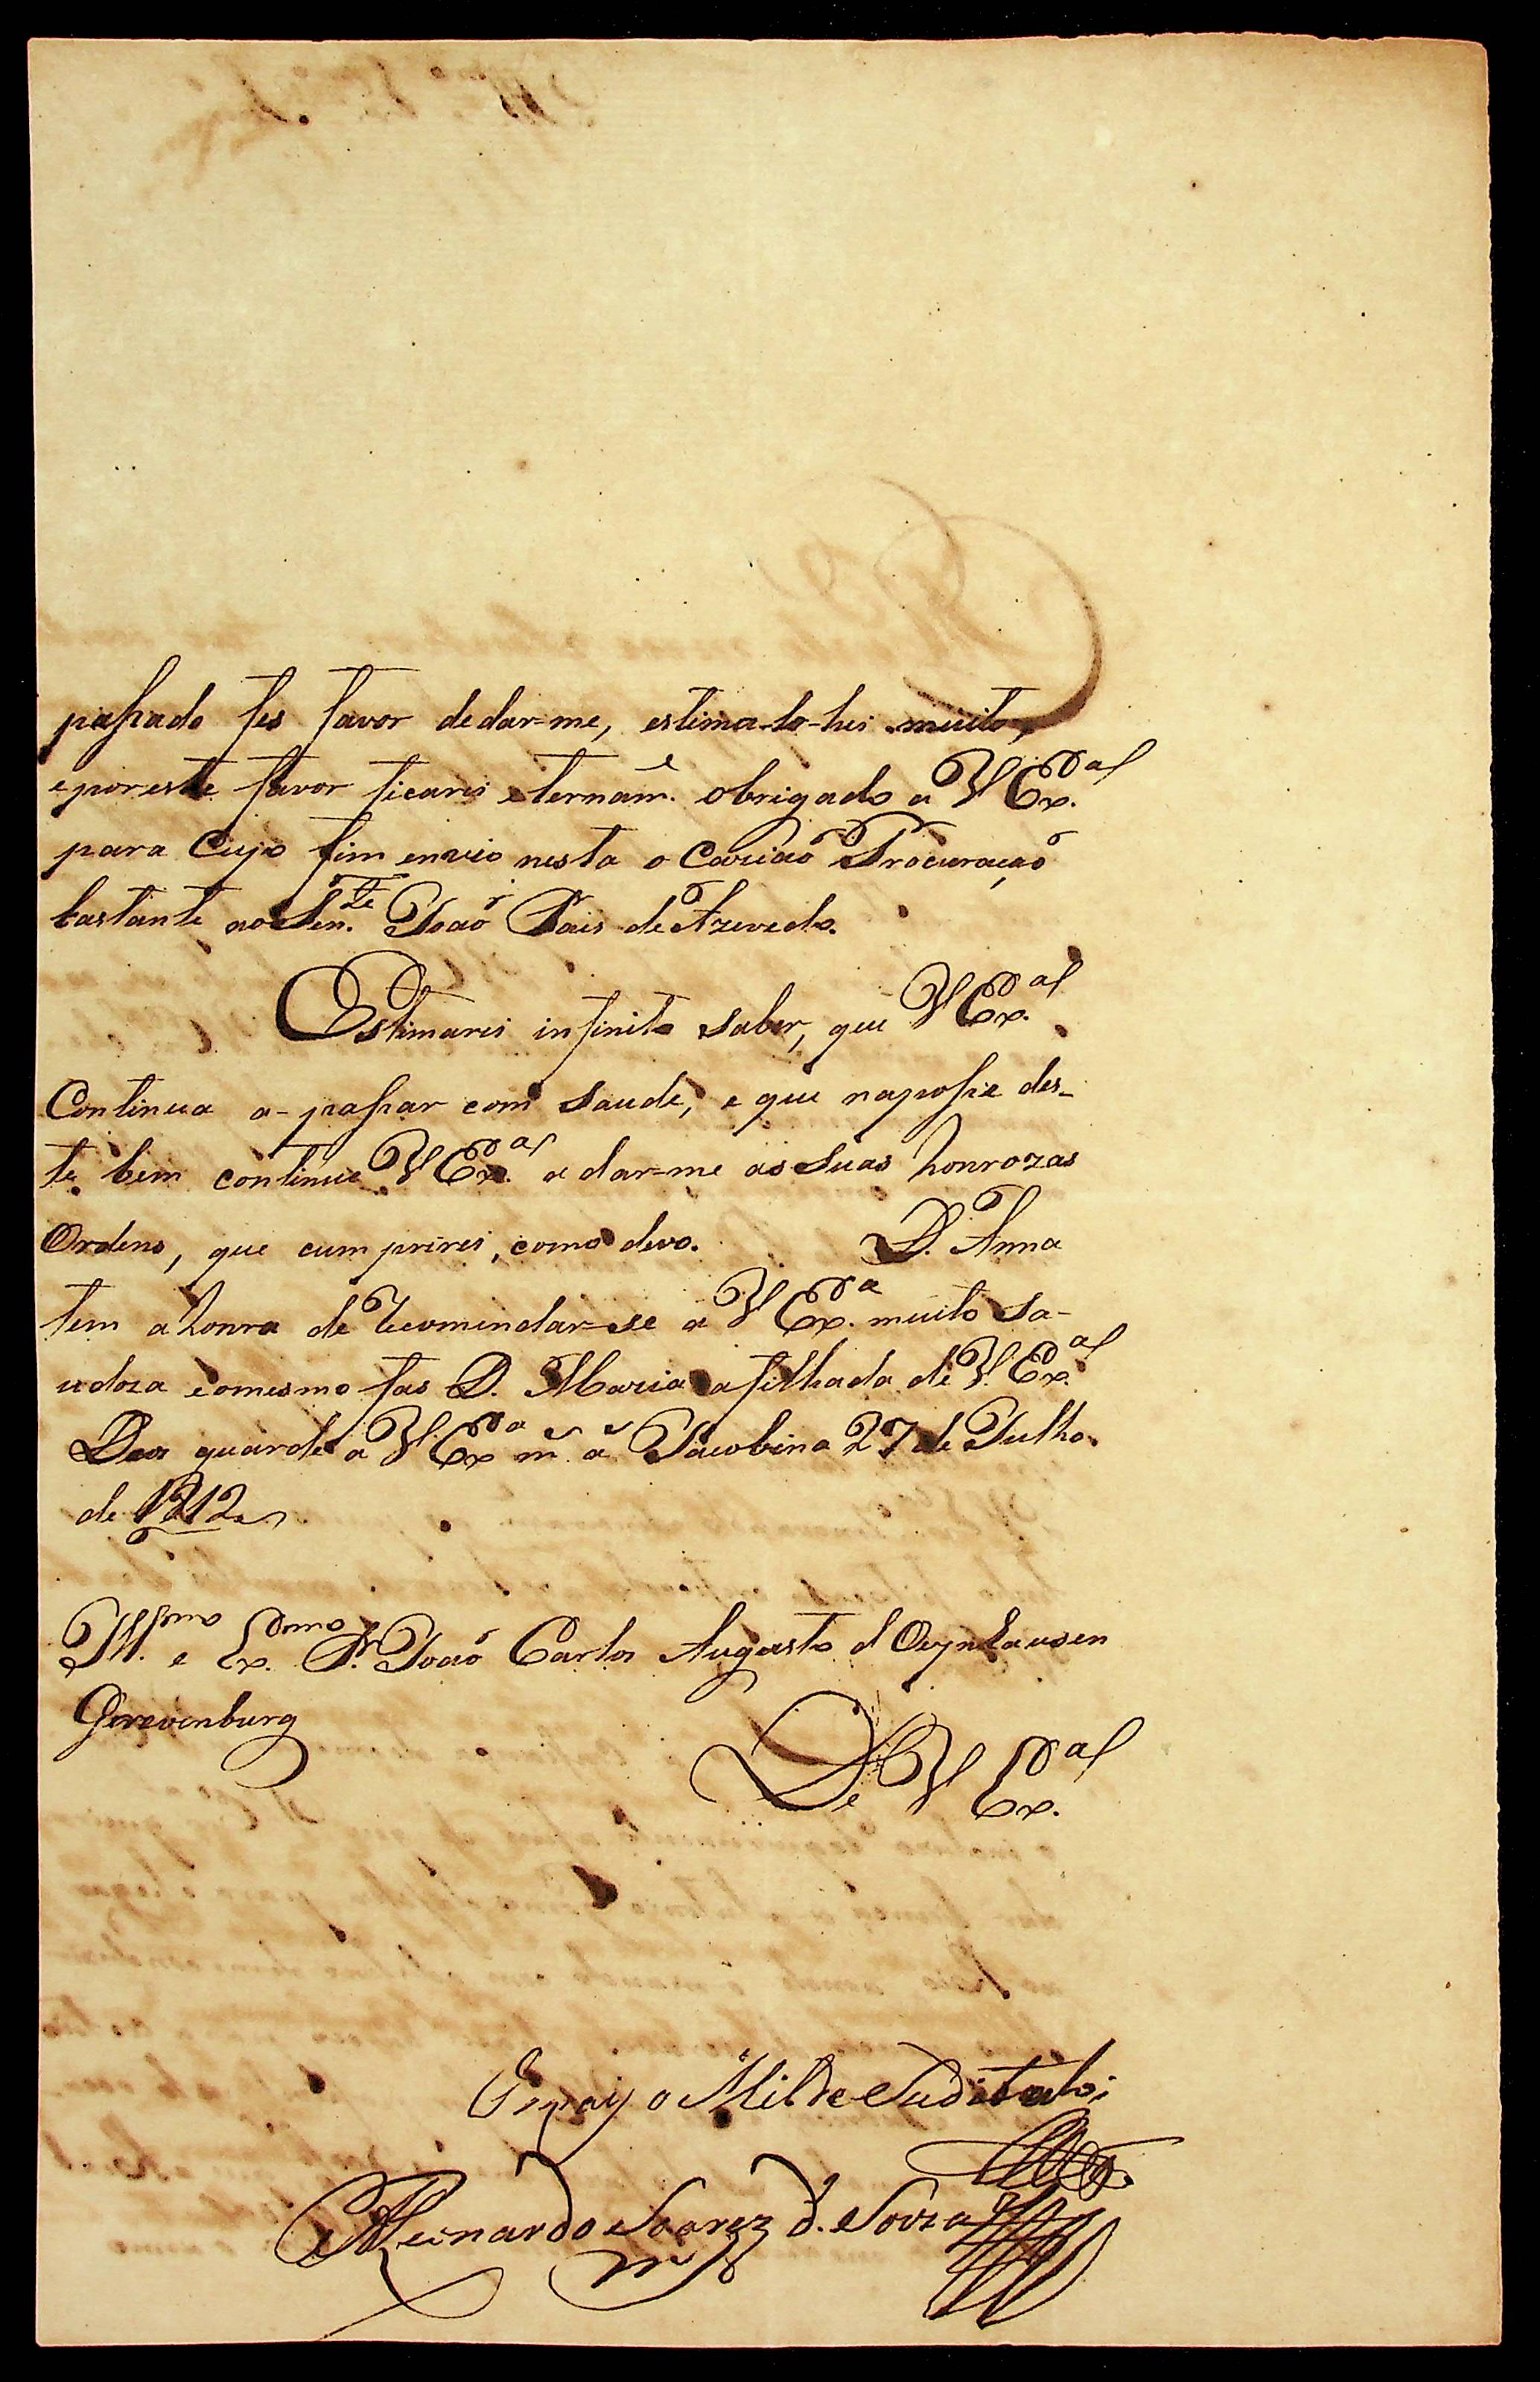 passado fes favor dedar=me, estima-lo-hei muito,
eporeste favor ficarei eternam.e obrigado a V Ex.a
para Cujo fim envio nesta o Procuração
bastante ao Ten.te João Pais de Azevedo.
Estimarei infinito saber, que V Ex.a
Continua a-passar com Saude, e que naposse des-
te bem continue V Ex.a a dar=me as Suas honrozas
Ordens, que cumprirei, como devo. D. Anna
tem ahonra de recomendar=se a V Ex.a muito Sa-
udoza eomesmo fas D. Maria afilhada de V. Ex.a
Deos guarde a V Ex.a m.s a.s Jacobina 27 de Julho
de 1812
Ill.mo e Ex.mo Sr. João Carlos Augusto d Oeynhausen
Gravenburg
De V Ex.a
o
Soarez d. Souza